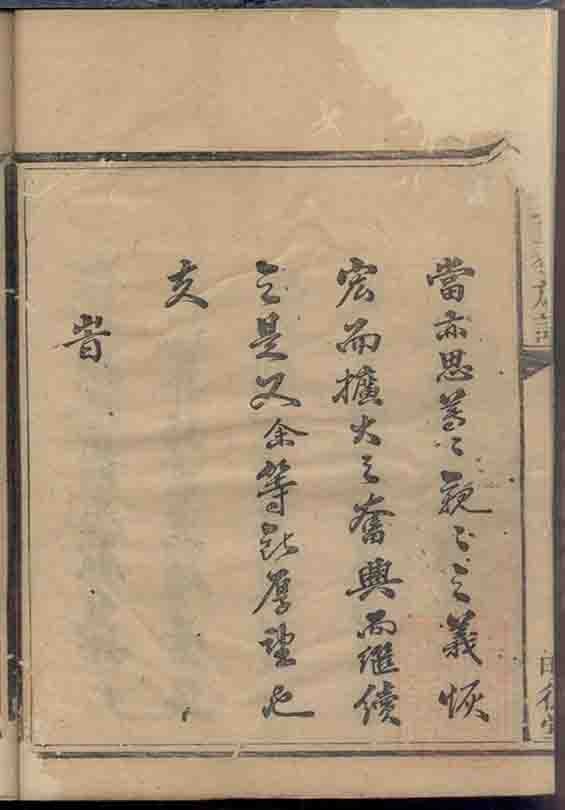 當亦思尊〻親〻之義恢
宏而擴大之奮興而繼續
之是又余等所厚望也
支
旹